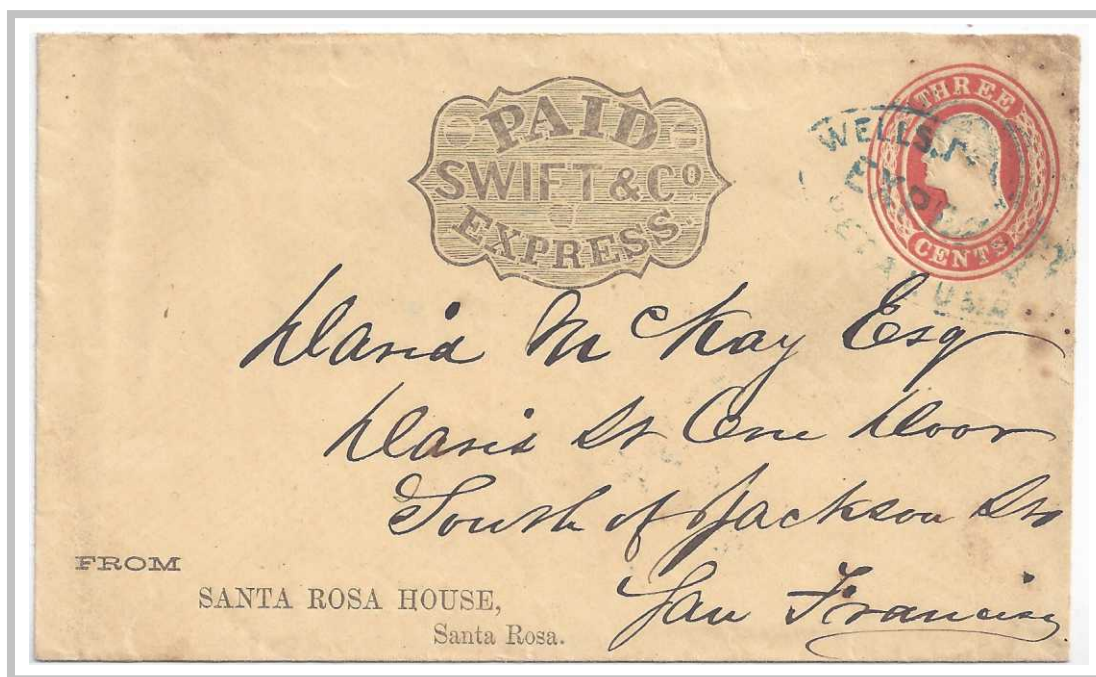 PAID
SWIFT & Co
EXPRESS
THREE
CENTS
WELLS,
PETALUMA
David McKay Esq
Davis St One Door
South of Jackson St
San Francisco
FROM
SANTA ROSA HOUSE,
Santa Rosa.